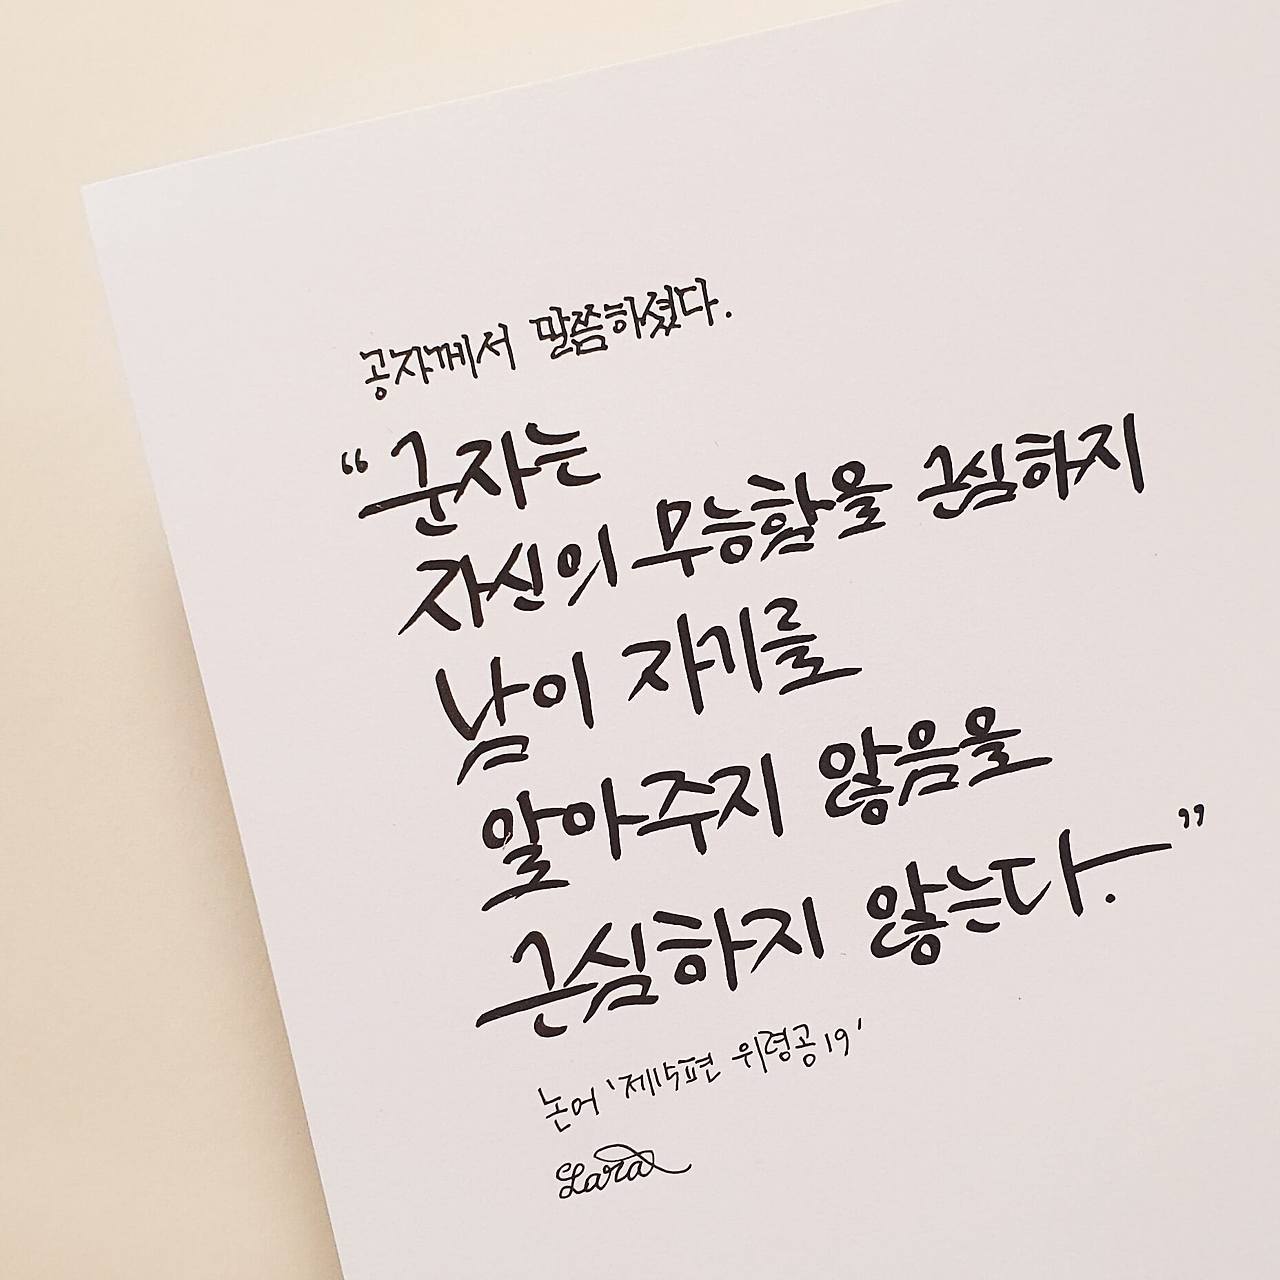 공자께서 말씀하셨다.
“군자는
자신의 무능함을 근심하지
남이 자기를
알아주지 않음을
근심하지 않는다.”
논어 '제15편 위령공 19'
Lara